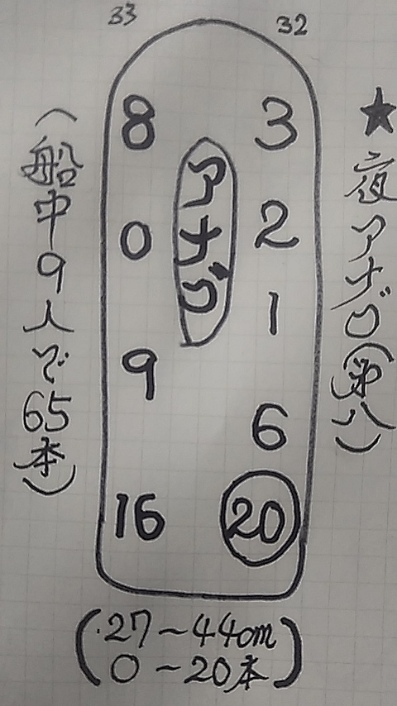 ★夜アナゴ(第八)
33 32
8 3
アナゴ
0 2
1
9
6
16 20
(船中9人で65本)
(27～44cm
0～20本)